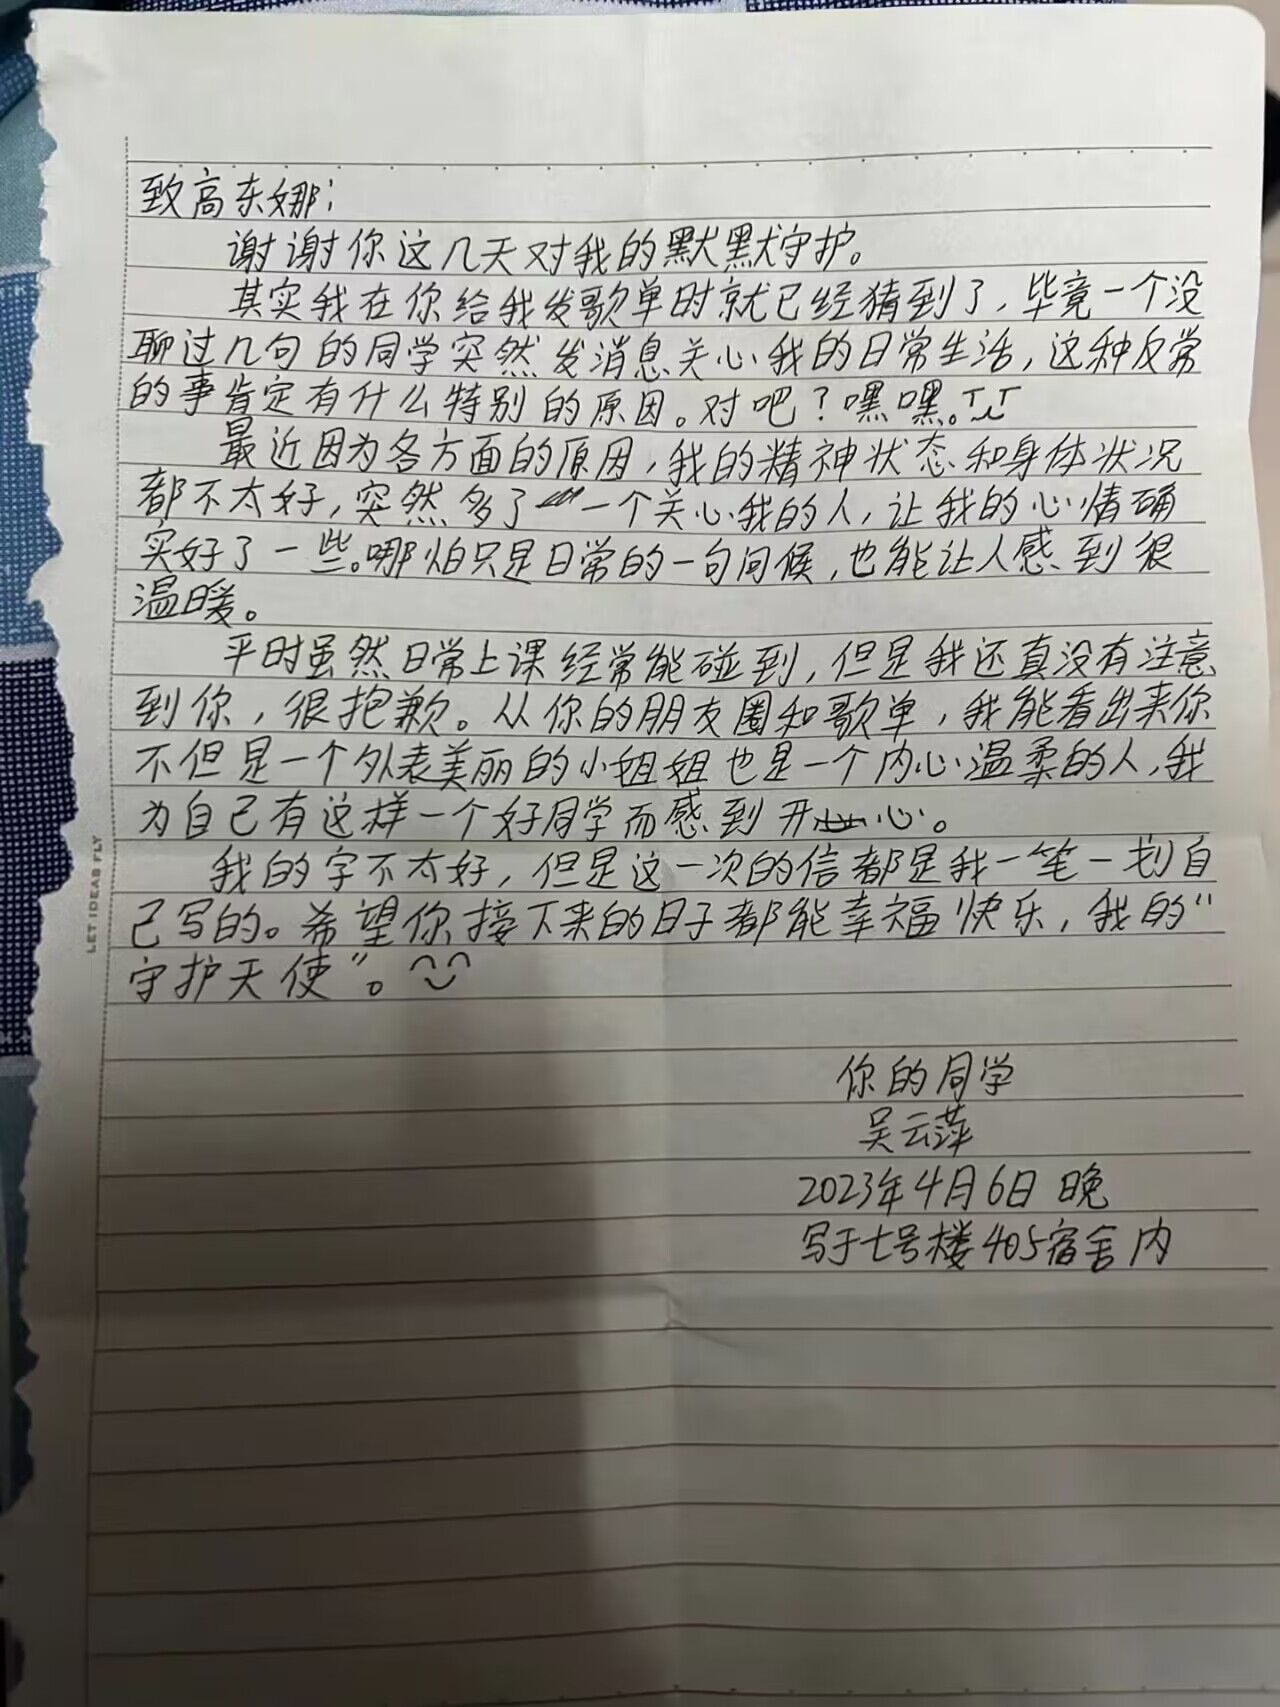 致高东娜:
谢谢你这几天对我的默默守护。
其实我在你给我发歌单时就已经猜到了，毕竟一个没
聊过几句的同学突然发消息关心我的日常生活，这种反常
的事肯定有什么特别的原因。对吧？嘿嘿。
最近因为各方面的原因，我的精神状态和身体状况
都不太好，突然多了一个关心我的人，让我的心情确
实好了一些。哪怕只是日常的一句问候，也能让人感到很
温暖。
平时虽然日常上课经常能碰到，但是我还真没有注意
到你，很抱歉。从你的朋友圈和歌单，我能看出来你
不但是一个外表美丽的小姐姐也是一个内心温柔的人，我
为自己有这样一个好同学而感到开心。
我的字不太好，但是这一次的信都是我一笔一划自
己写的。希望你接下来的日子都能幸福快乐，我的“
守护天使”。
你的同学
吴云萍
2023年4月6日 晚
写于七号楼405宿舍内
LET IDEAS FLY